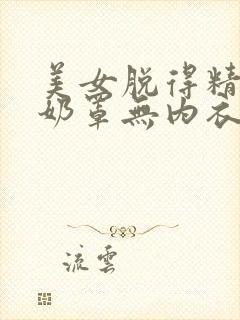 美女脱得精
奶罩無内衣
流雲